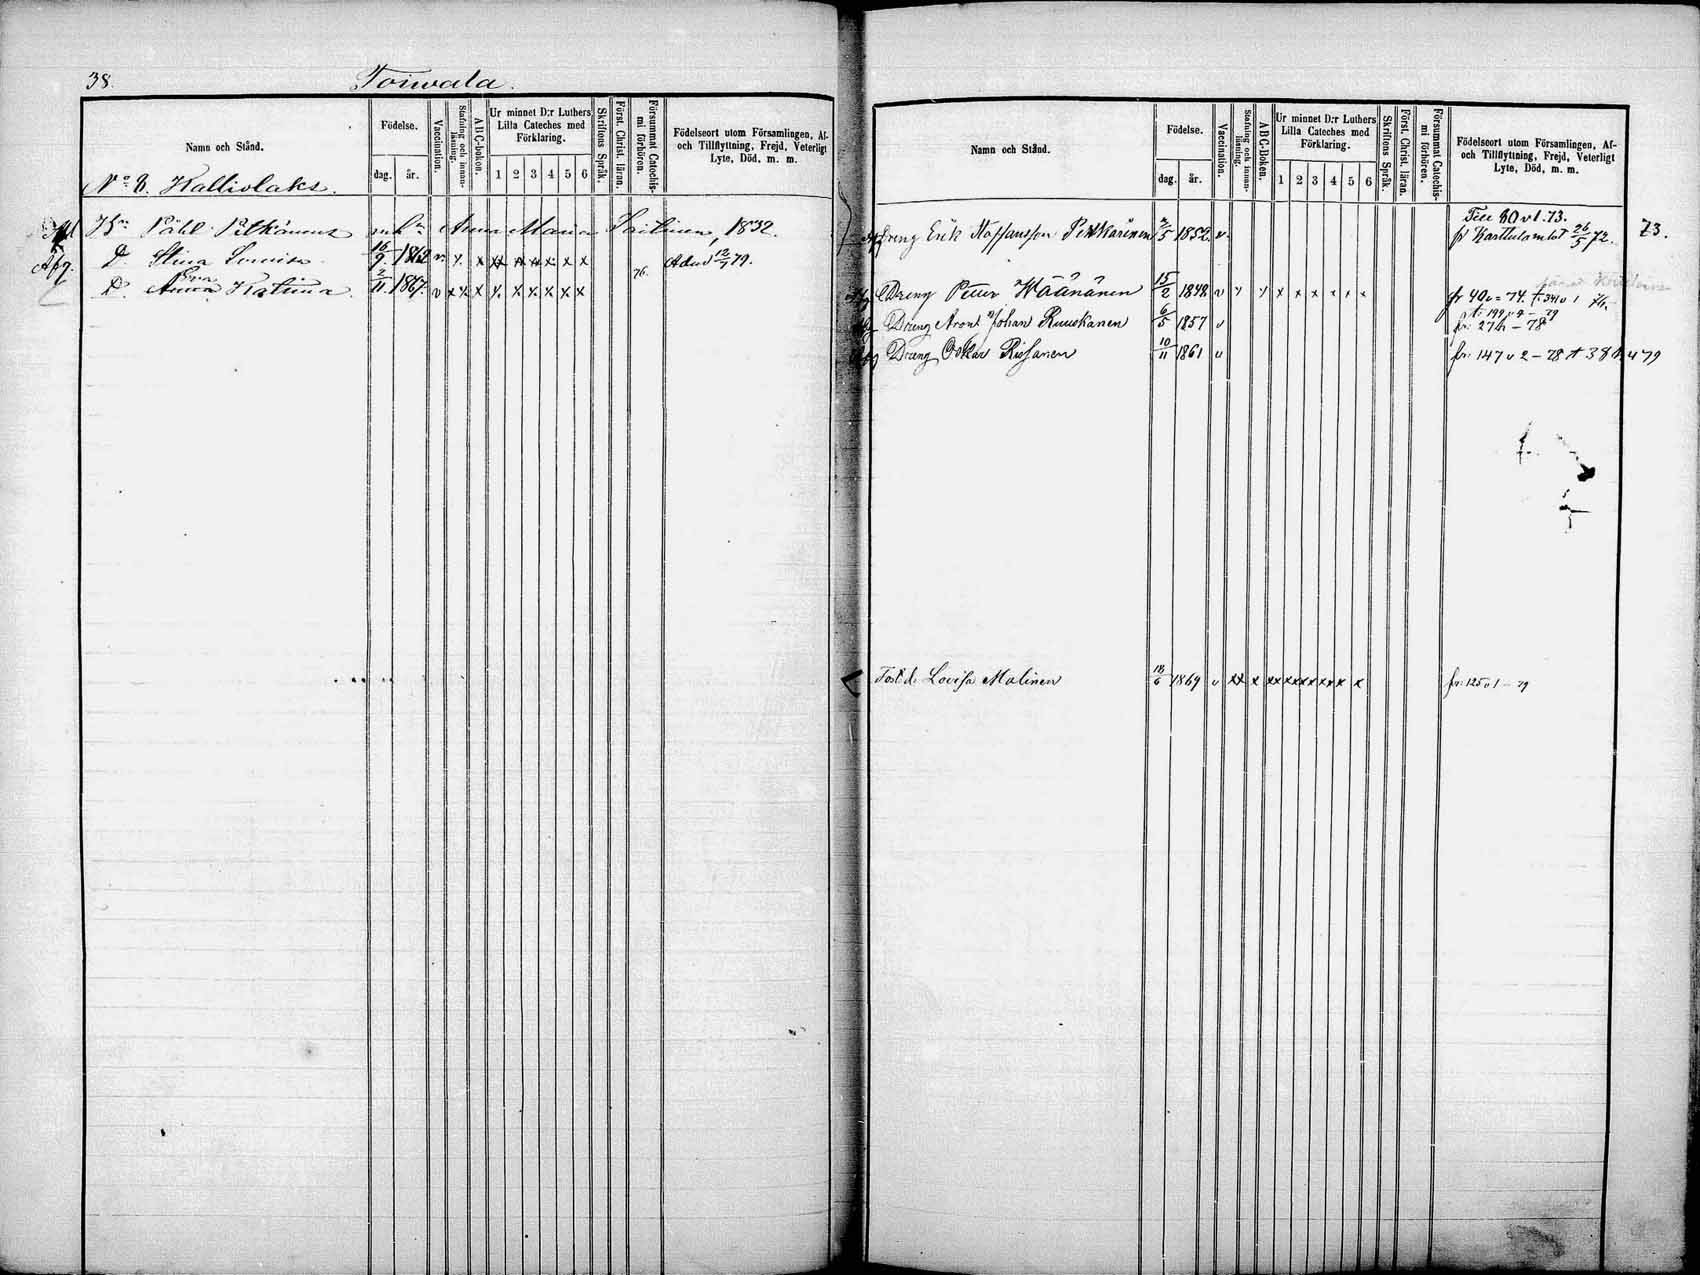 38.
Toiwala.
Namn och Stånd.
Födelse.
dag. år.
Vaccination.
Stafning och innan-läsning.
A B C-boken.
Ur minnet D:r Luthers Lilla Cateches med Förklaring.
1 2 3 4 5 6
Skriftens Språk.
Först. Christ. läran.
Försummat Catechis-mi förhören.
Födelseort utom Församlingen, Af- och Tillflyttning, Frejd, Veterligt Lyte, Död, m. m.
No 8. Kalliolaks.
Bn Påhl Pitkänens m hu Anna Maria 1832.
Afg. D. Stina Lovisa 16/9. 1862 v. x x x x x x x x 12/7 79.
D. Anna Eva Katrina 2/11. 1867. v x x x x x x x x x 76.
Namn och Stånd.
Födelse.
dag. år.
Vaccination.
Stafning och innan-läsning.
A B C-Boken.
Ur minnet D:r Luthers Lilla Cateches med Förklaring.
1 2 3 4 5 6
Skriftens Språk.
Först. Christ. läran.
Försummat Catechis-mi förhören.
Födelseort utom Församlingen, Af- och Tillflyttning, Frejd, Veterligt Lyte, Död, m. m.
Till 80 v 1. 73.
Dreng Erik Staffansson Pitkänen /5 1852. v. fr Karttula 26/5 72. 73.
Dreng Petter Wäänänen 15/2 1848 v x x x x x x x x fr 40 v = 74. t. 341 v 1 76.
t. 199 v 9 - 79
Dreng Aront Johan Ruuskanen 6/5 1857 v fr. 274 - 78
Dreng Oskar Rissanen 10/11 1861 v fr. 147 v 2 - 78 t 38 79
Fost.d. Lovisa Malinen 18/6 1869 v xx x xx xx xx xx x x fr. 125 v 1 - 79